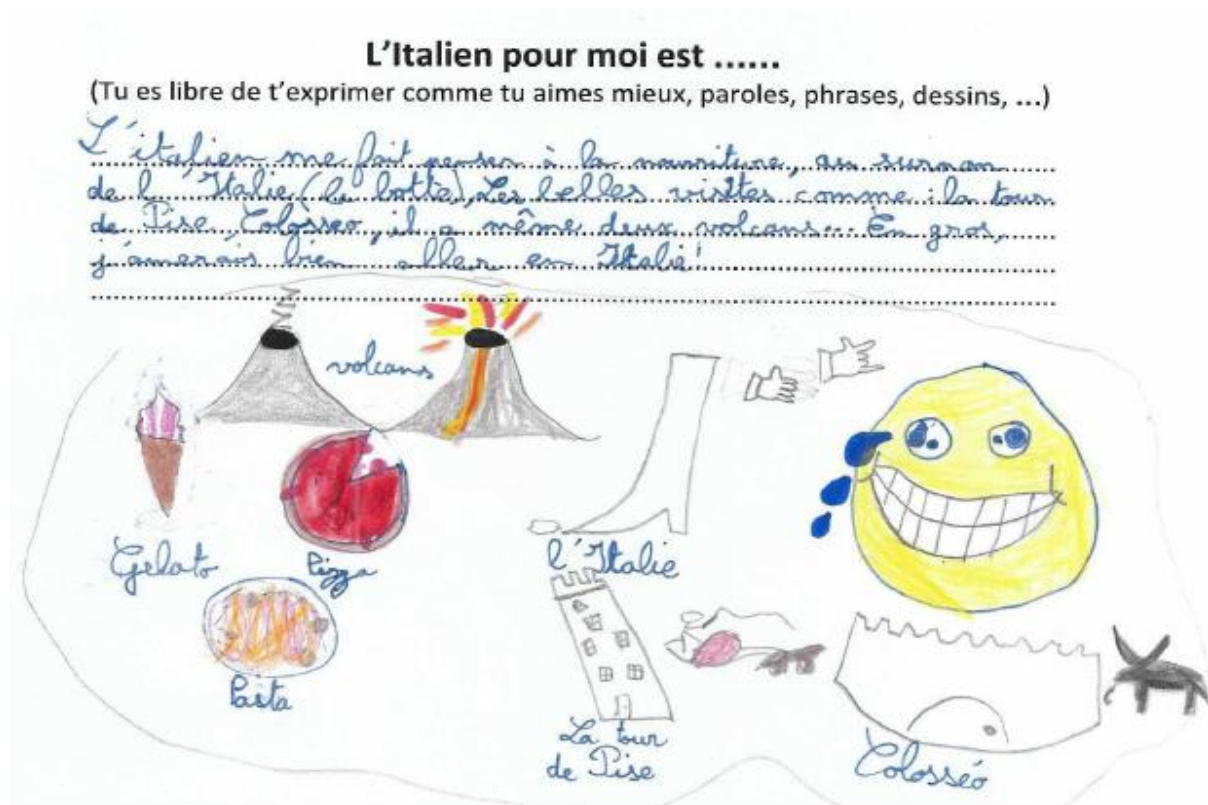 L'Italien pour moi est ......
(Tu es libre de t'exprimer comme tu aimes mieux, paroles, phrases, dessins, ...)
L'italien me fait penser à la nourriture, au surnan
de l'Italie (la botte), Les belles visites comme : la tour
de Pise, Colosseo, il a même deux volcans... En gros,
j'amerais bien aller en Italie !
volcans
Gelato
Pizza
l'Italie
Pasta
La tour
de Pise
Colosséo